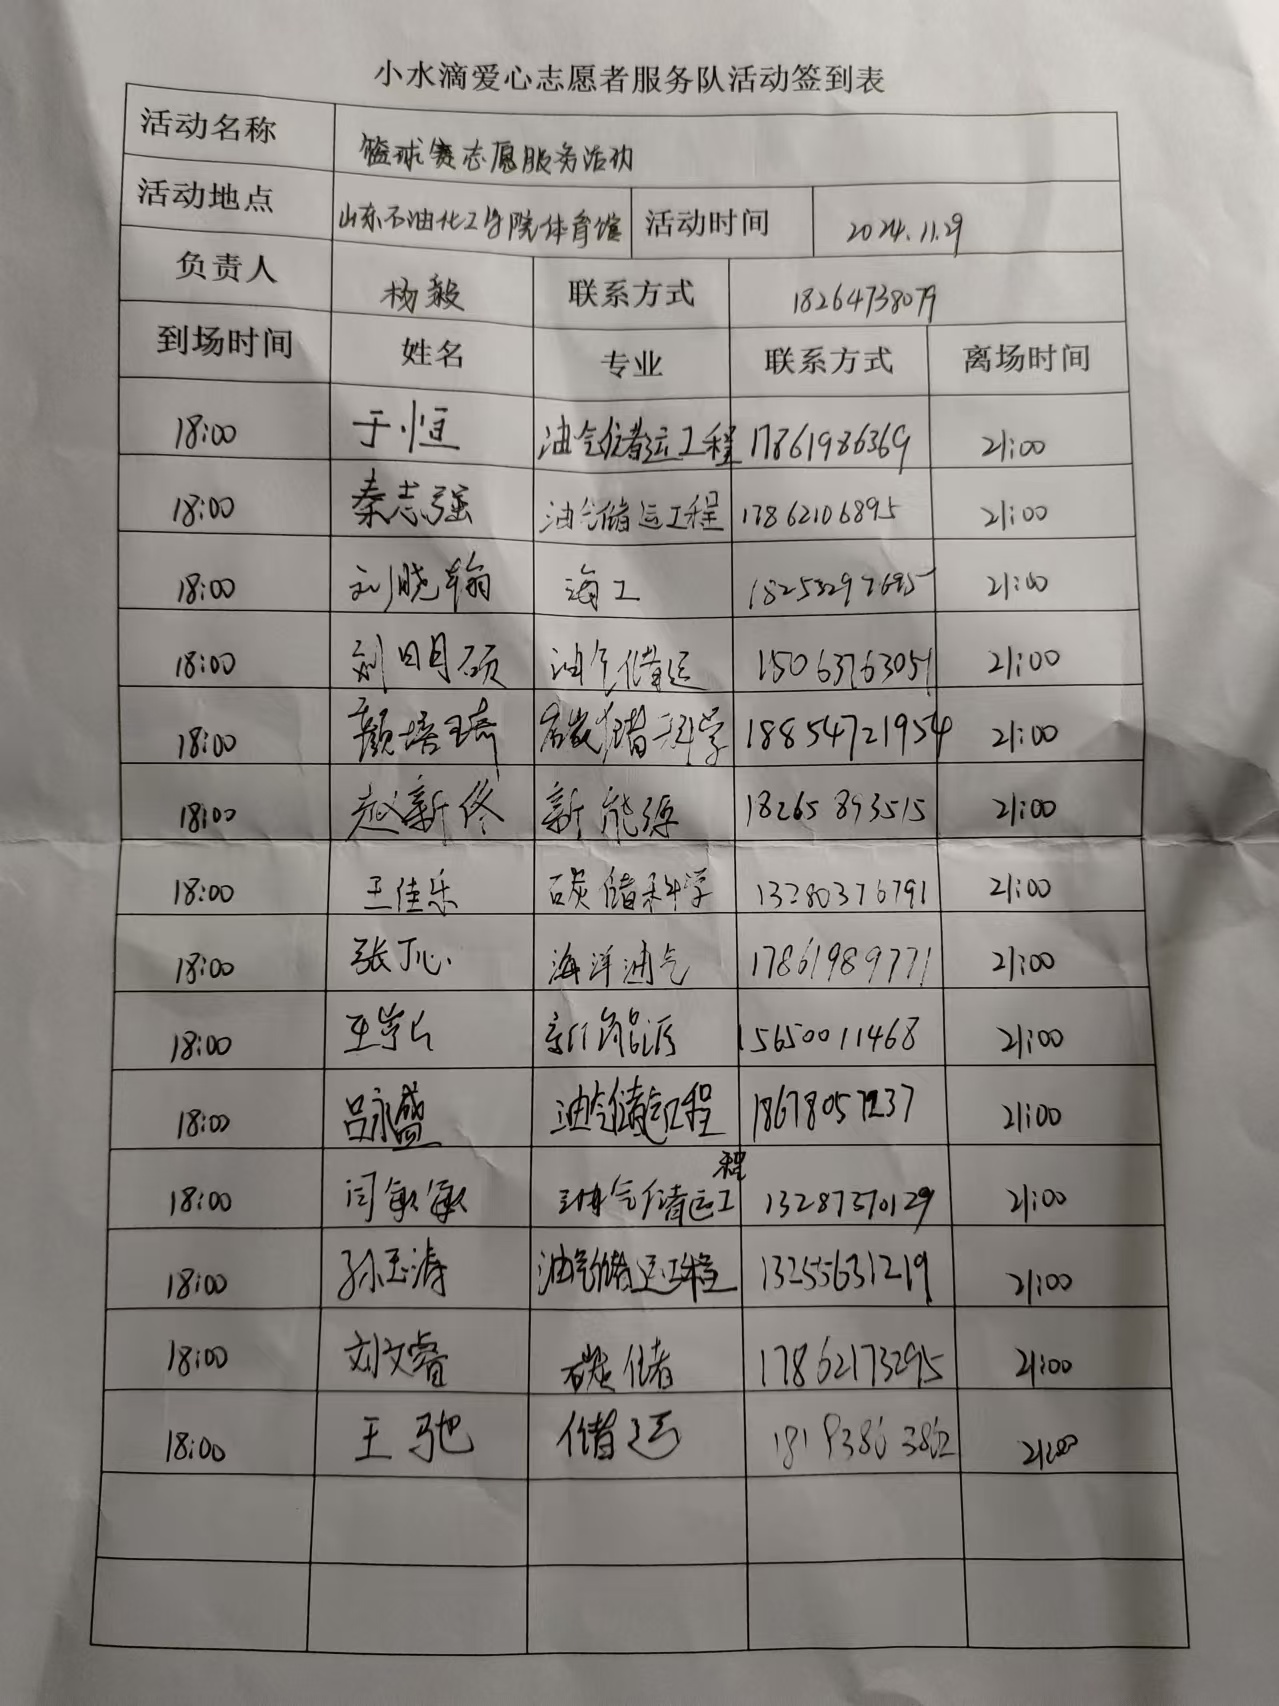 小水滴爱心志愿者服务队活动签到表
活动名称 篮球赛志愿服务活动
活动地点 山东石油化工学院体育馆 活动时间 2024.11.29
负责人 杨毅 联系方式 18264738079
到场时间 姓名 专业 联系方式 离场时间
18:00 于恒 油气储运工程 17861986369 21:00
18:00 秦志强 油气储运工程 17862106895 21:00
18:00 刘晓翰 海工 21:00
18:00 刘明硕 油气储运 15063763051 21:00
18:00 颜培琦 碳储科学 18854721954 21:00
18:00 赵新佟 新能源 18265893515 21:00
18:00 王佳乐 碳储科学 13280376791 21:00
18:00 张丁心 海洋油气 17861989771 21:00
18:00 新能源 15650011468 21:00
18:00 吕永盛 油气储运工程 21:00
18:00 闫敏敏 油气储运工程 13287370129 21:00
18:00 孙玉涛 油气储运工程 13255631219 21:00
18:00 刘文睿 碳储 17862173295 21:00
18:00 王驰 储运 21:00